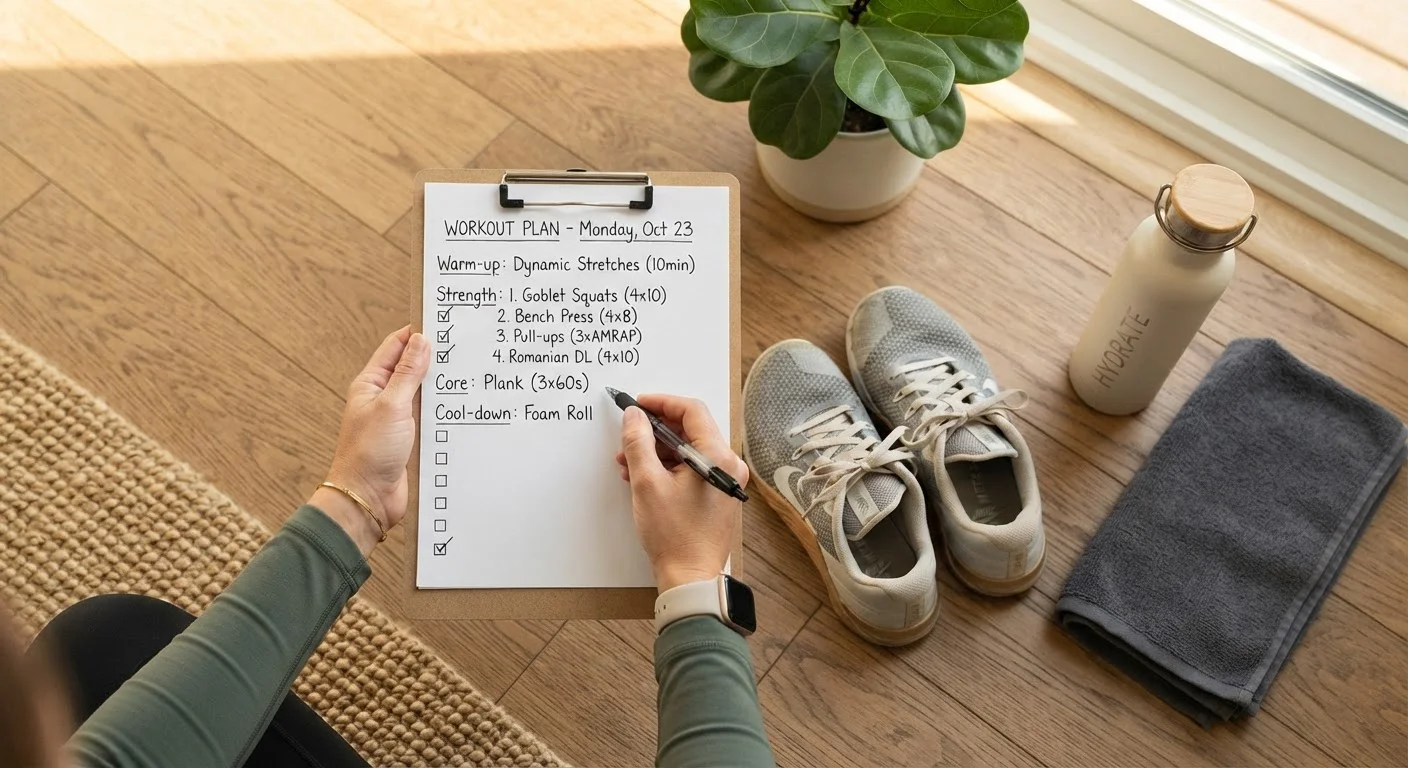 WORKOUT PLAN - Monday, Oct 23
Warm-up: Dynamic Stretches (10min)
Strength: 1. Goblet Squats (4x10)
2. Bench Press (4x8)
3. Pull-ups (3xAMRAP)
4. Romanian DL (4x10)
Core: Plank (3x60s)
Cool-down: Foam Roll
HYDRATE